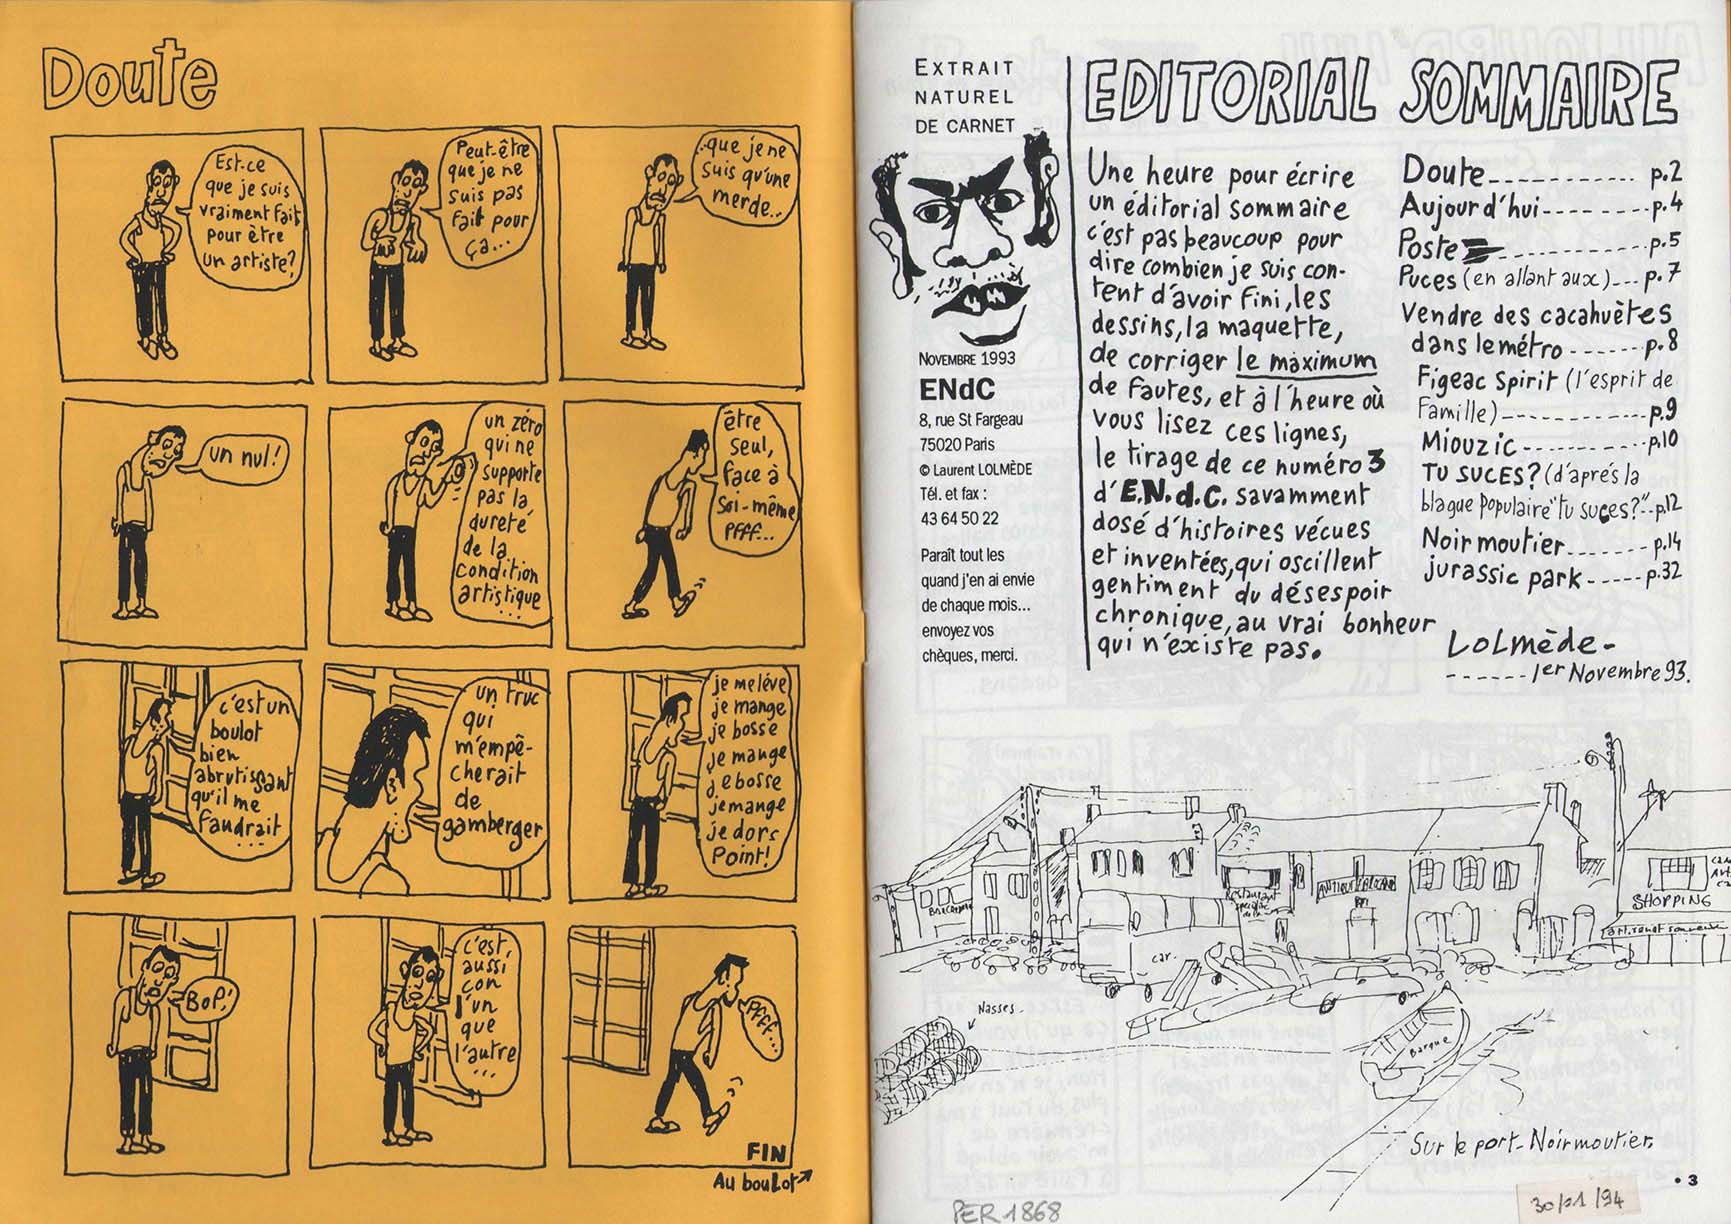 Doute
Est-ce
que je suis
vraiment fait
pour être
un artiste?
Peut-être
que je ne
suis pas
fait pour
ça...
...que je ne
suis qu'une
merde...
un nul!
un zéro
qui ne
supporte
pas la
dureté
de la
condition
artistique
...
être
seul,
face à
soi-même
Pfff...
c'est un
boulot
bien
abrutissant
qu'il me
faudrait
....
un truc
qui
m'empê-
cherait
de
gamberger
je me lève
je mange
je bosse
je mange
je bosse
je mange
je dors
Point!
BOP!
c'est
aussi
con
l'un
que
l'autre
...
Pfff...
FIN
Au boulot
EXTRAIT
NATUREL
DE CARNET
NOVEMBRE 1993
ENdC
8, rue St Fargeau
75020 Paris
© Laurent LOLMÈDE
Tél. et fax :
43 64 50 22
Paraît tout les
quand j'en ai envie
de chaque mois...
envoyez vos
chèques, merci.
EDITORIAL SOMMAIRE
Une heure pour écrire
un éditorial sommaire
c'est pas beaucoup pour
dire combien je suis con-
tent d'avoir fini, les
dessins, la maquette,
de corriger le maximum
de fautes, et à l'heure où
vous lisez ces lignes,
le tirage de ce numéro 3
d'E.N.d.C. savamment
dosé d'histoires vécues
et inventées, qui oscillent
gentiment du désespoir
chronique, au vrai bonheur
qui n'existe pas.
Doute ---------- p.2
Aujourd'hui -------- p.4
Poste ---------- p.5
Puces (en allant aux) --- p.7
Vendre des cacahuètes
dans le métro ------ p.8
Figeac Spirit (l'esprit de
Famille) ---------- p.9
Miouzic ---------- p.10
TU SUCES? (d'après la
blague populaire "tu suces?" -- p.12
Noirmoutier ------- p.14
jurassic park ----- p.32
LOLMède -
------ 1er Novembre 93.
RESTAURANT
SHOPPING
car.
Nasses.
Barque
Sur le port - Noirmoutier.
• 3
PER 1868
30/01/94